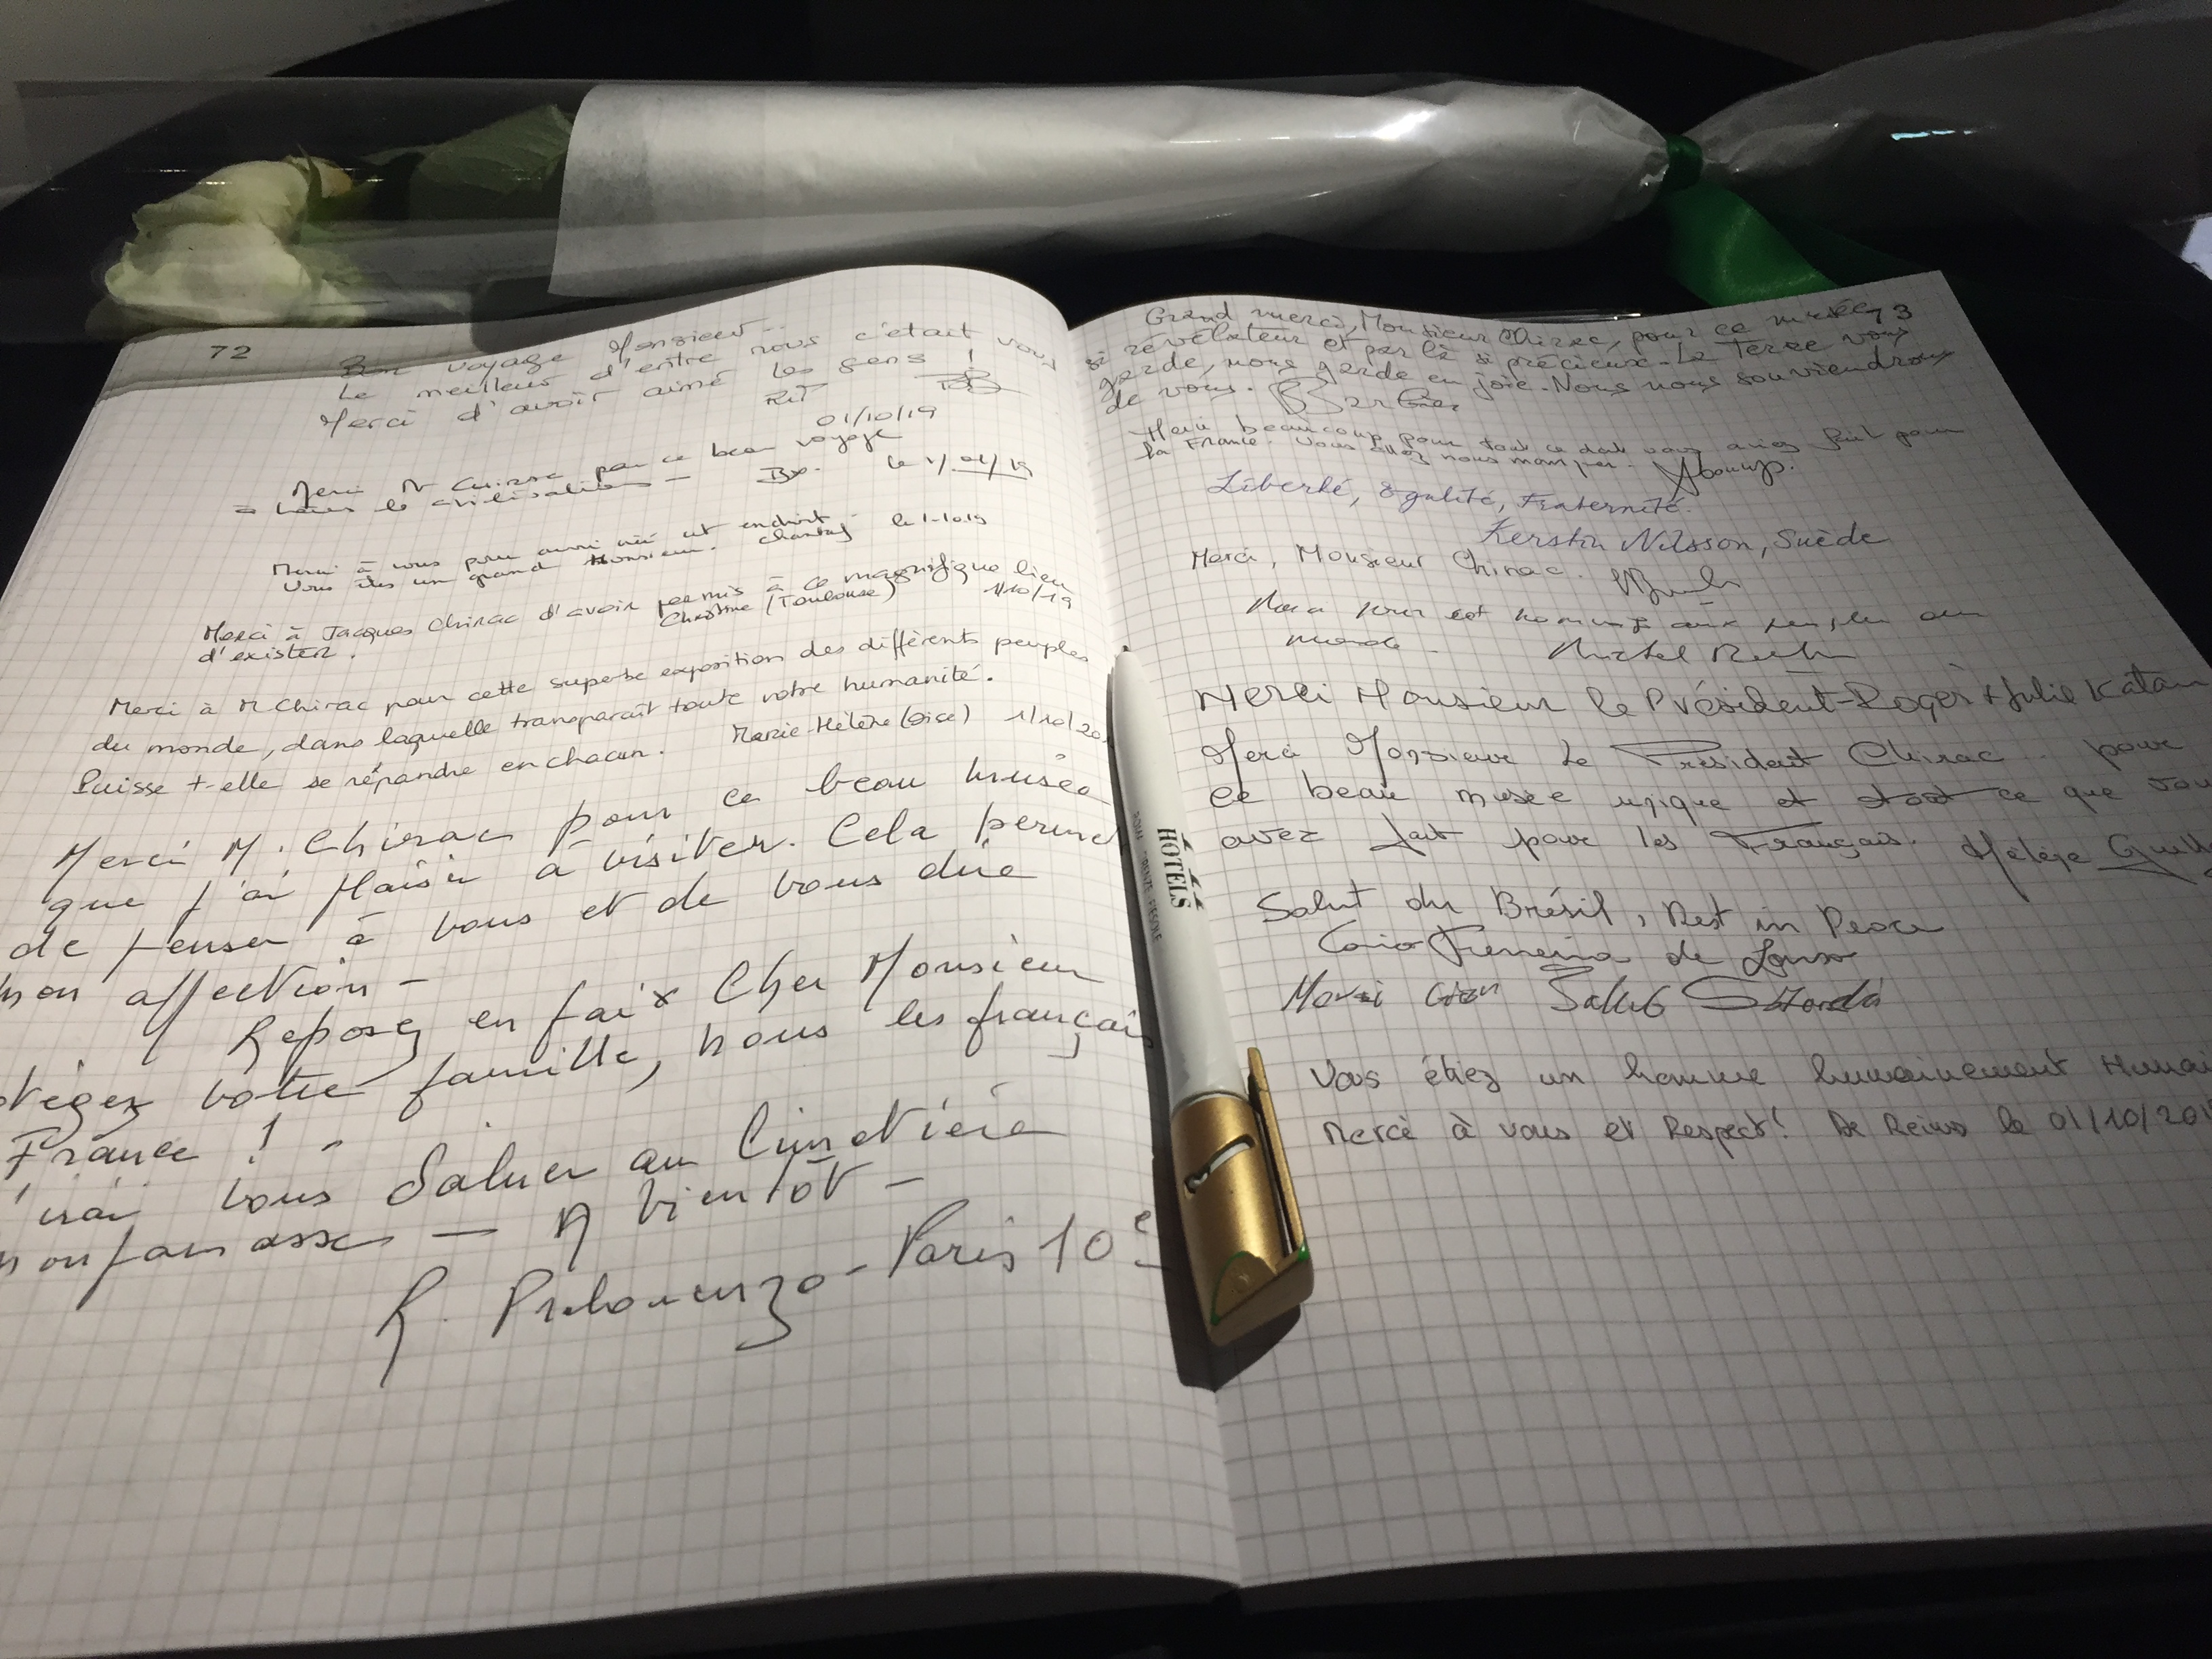 72
Bon voyage Monsieur...
Le meilleur d'entre nous c'était vous
Merci d'avoir aimé les gens !
01/10/19
Merci Mr Chirac pour ce beau voyage
à travers les civilisations -
Merci à vous pour
le 1-10-19
Vous êtes un grand Monsieur. Chantal
Merci à Jacques Chirac d'avoir permis à ce magnifique lieu
d'exister.
Christine (Toulouse) 1/10/19
Merci à M Chirac pour cette superbe exposition des différents peuples
du monde, dans laquelle transparaît toute votre humanité.
Puisse t-elle se répandre en chacun. Marie-Hélène (Oise) 1/10/20
Merci M. Chirac pour ce beau musée
que j'ai plaisir à visiter. Cela permet
de penser à vous et de vous dire
mon affection -
Reposez en paix Cher Monsieur
otégez votre famille, nous les français
France ! -
'irai vous Saluer au Cimetière
Monparnasse - A bientôt -
R. - Paris 10e
73
Grand merci, Monsieur Chirac, pour ce musée
si révélateur et par là si précieux. La Terre vous
garde, nous garde en joie. Nous nous souviendrons
de vous.
Merci beaucoup pour tout ce dont vous aviez fait pour
la France. Vous allez nous manquer.
Liberté, égalité, Fraternité.
Kerstin Nilsson, Suède
Merci, Monsieur Chirac.
hommage aux peuples du
monde -
Merci Monsieur le Président - Roger + Julie Katan
Merci Monsieur Le Président Chirac pour
ce beau musée unique et tout ce que vou
avez fait pour les Français. Hélène
Salut du Brésil, Rest in Peace
Caio Ferreira de
Merci Salut
Vous étiez un homme humainement Humai
Merci à vous et Respect ! De Reims le 01/10/201
HOTELS